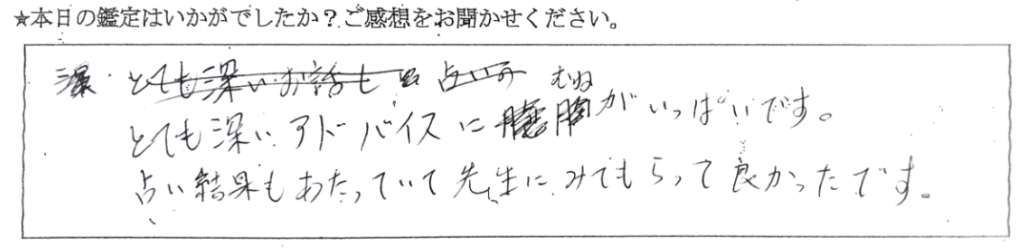 ★本日の鑑定はいかがでしたか？ご感想をお聞かせください。
とても深いお話も 占い
むね
とても深いアドバイスに胸がいっぱいです。
占い結果もあたっていて先生にみてもらって良かったです。